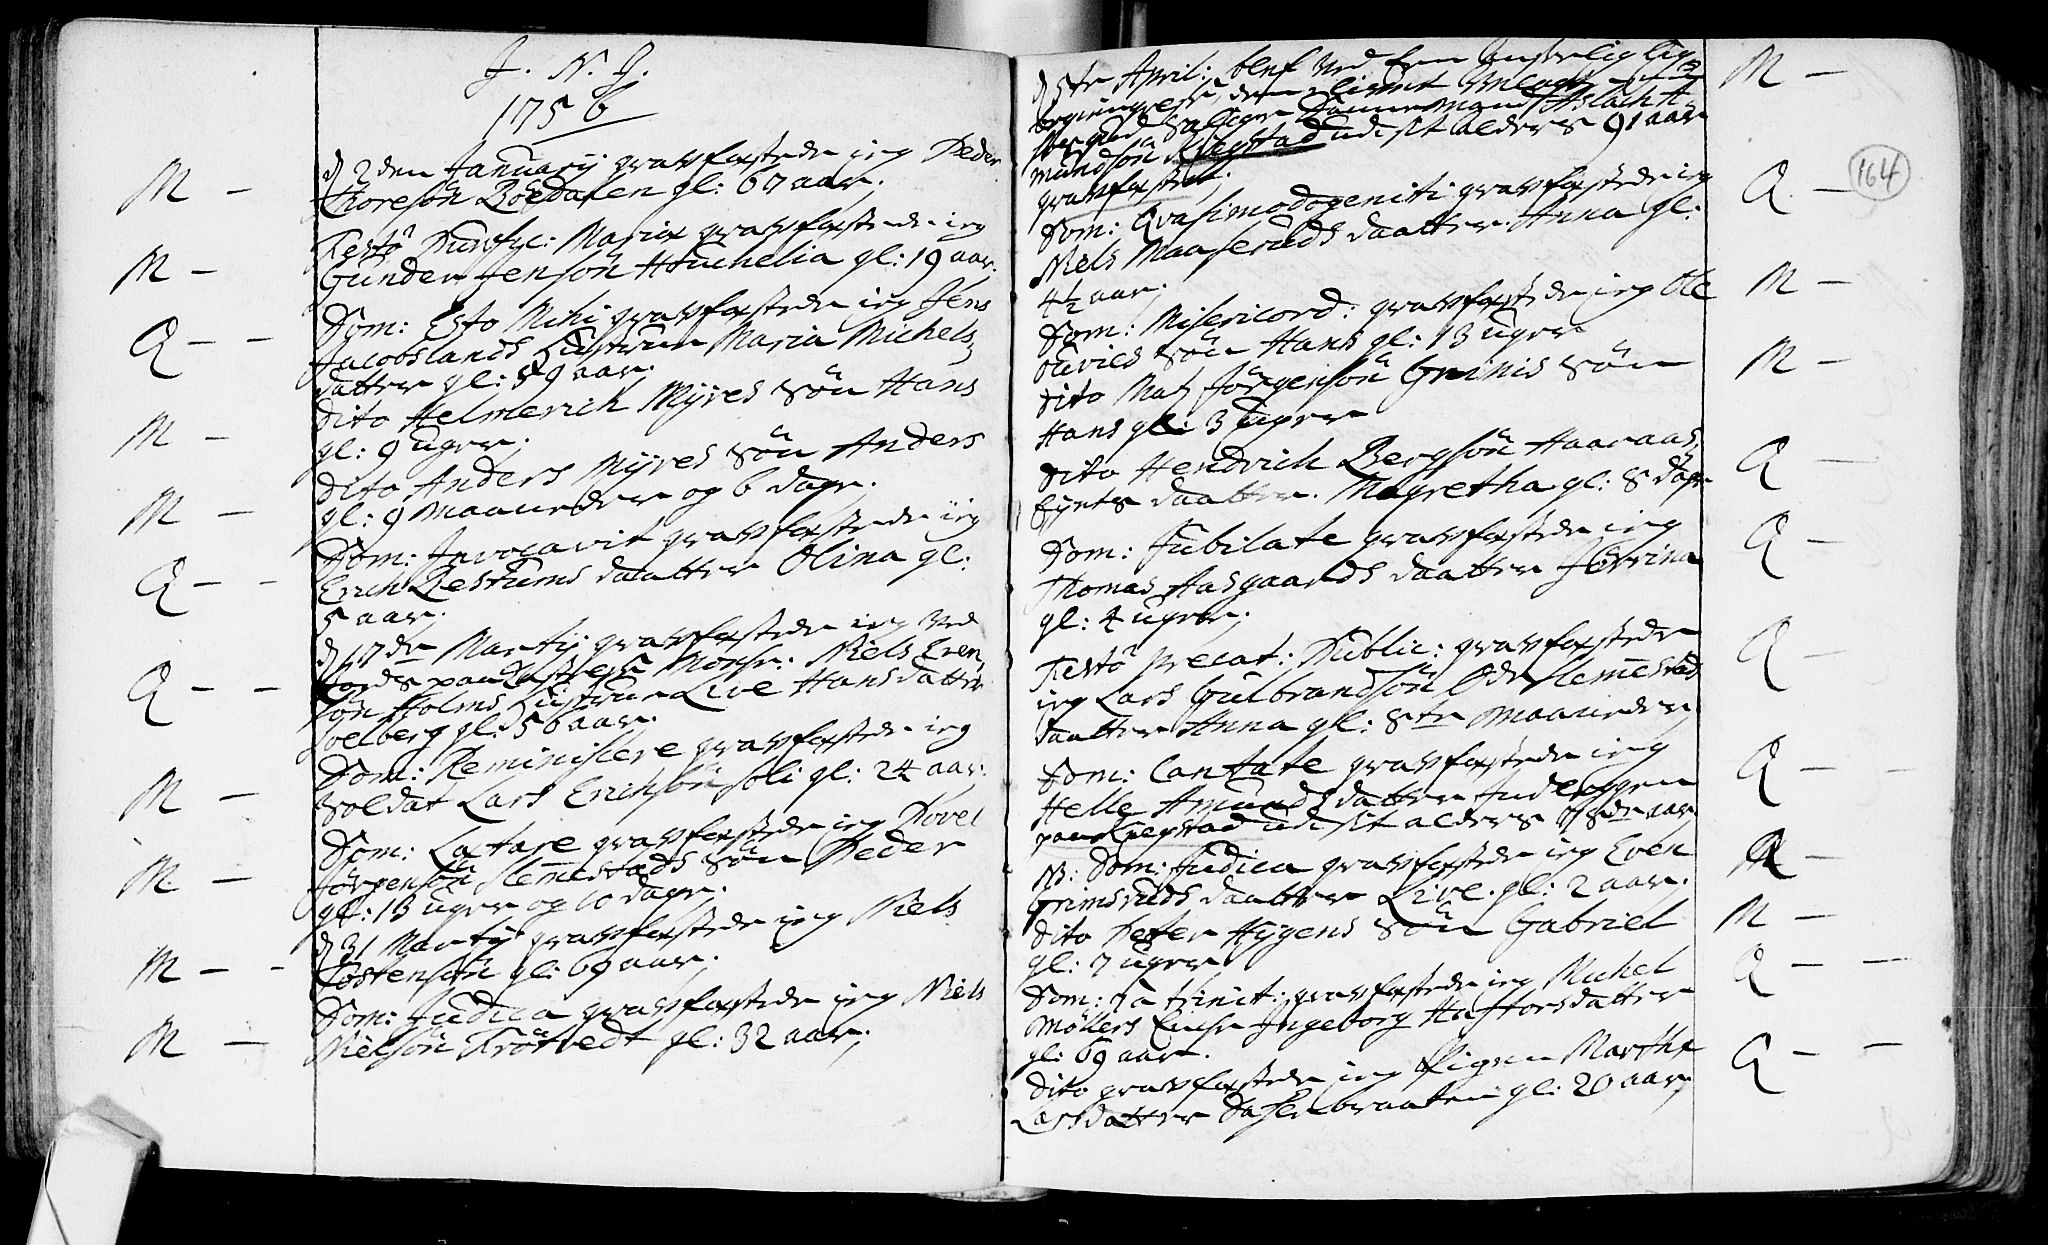 J. N. J.
1756
M - d 2den Januarij gravfæstede ieg Peder
Thoresön Böedalen gl: 67 aar.
M - Festo Purific: Mariæ gravfæstede ieg
Gunder Jensön Huchelia gl: 19 aar.
Q - - Dom: Esto Mihi gravfæstede ieg Jens
Jacobslands Hustrue Maria Michels
datter gl: 59 aar.
M - dito Helmerich Myres Sön Hans
gl: 9 uger;
M - dito Anders Myres Sön Anders
gl: 9 Maaneder og 6 dage.
Q - - Dom: Invocavit gravfæstede ieg
Erich Restums daatter Olina gl:
5 aar.
Q - - d 17de Martij gravfæstede ieg ved
Monsr: Niels Even
sön Holms Hustrue Live Hansdatter
Soelberg gl: 56 aar.
M - Dom: Reminiscere gravfæstede ieg
Soldat Lars Erichsön Soli gl: 24 aar.
M - Dom: Lætare gravfæstede ieg Povel
Jörgensön Slemestads Sön Peder
gl: 13 uger og 10 dage;
M - - d 31 Martij gravfæstede ieg Niels
Tostensön gl: 69 aar.
M - Dom: Judica gravfæstede ieg Niels
Nielsön Trötvedt gl: 32 aar;
164
d 5te April: blef ved M -
Aslach A
mundsön udi sit alders 91 aar
gravfæstet;
Dom: Qvasimodogeniti gravfæstede ieg Q -
Niels Maaseruds daatter Anna gl:
4½ aar;
Dom: Misericord: gravfæstede ieg Ole M -
Sön Hans gl: 13 uger
dito Mats Jörgensön Grinis Sön M -
Hans gl: 3 uger
dito Hendrich Bergsön Haaraas Q -
Eyets daatter Magretha gl: 8 dage
Dom: Jubilate gravfæstede ieg Q -
Thomas Aasgaards daatter
gl: 4 uger;
Festo Precat: Public: gravfæstede Q -
ieg Lars Gulbrandsön Slemestad
daatter Anna gl: 8te Maaneder
Dom: Cantate gravfæstede ieg Q - -
Helle Amundsdatter
paa udi sit alders 78de aar
NB: Dom: Judica gravfæstede ieg Even -
Grimsruds daatter Live gl: 2 aar.
dito Peter Hygens Sön Gabriel M -
gl: 7 uger
Dom: 7a trinit: gravfæstede ieg Michel Q - -
Möllers Ingeborg Haftorsdatter
gl: 69 aar.
dito gravfæstede ieg Pigen Marthe Q - -
Larsdatter gl: 20 aar;